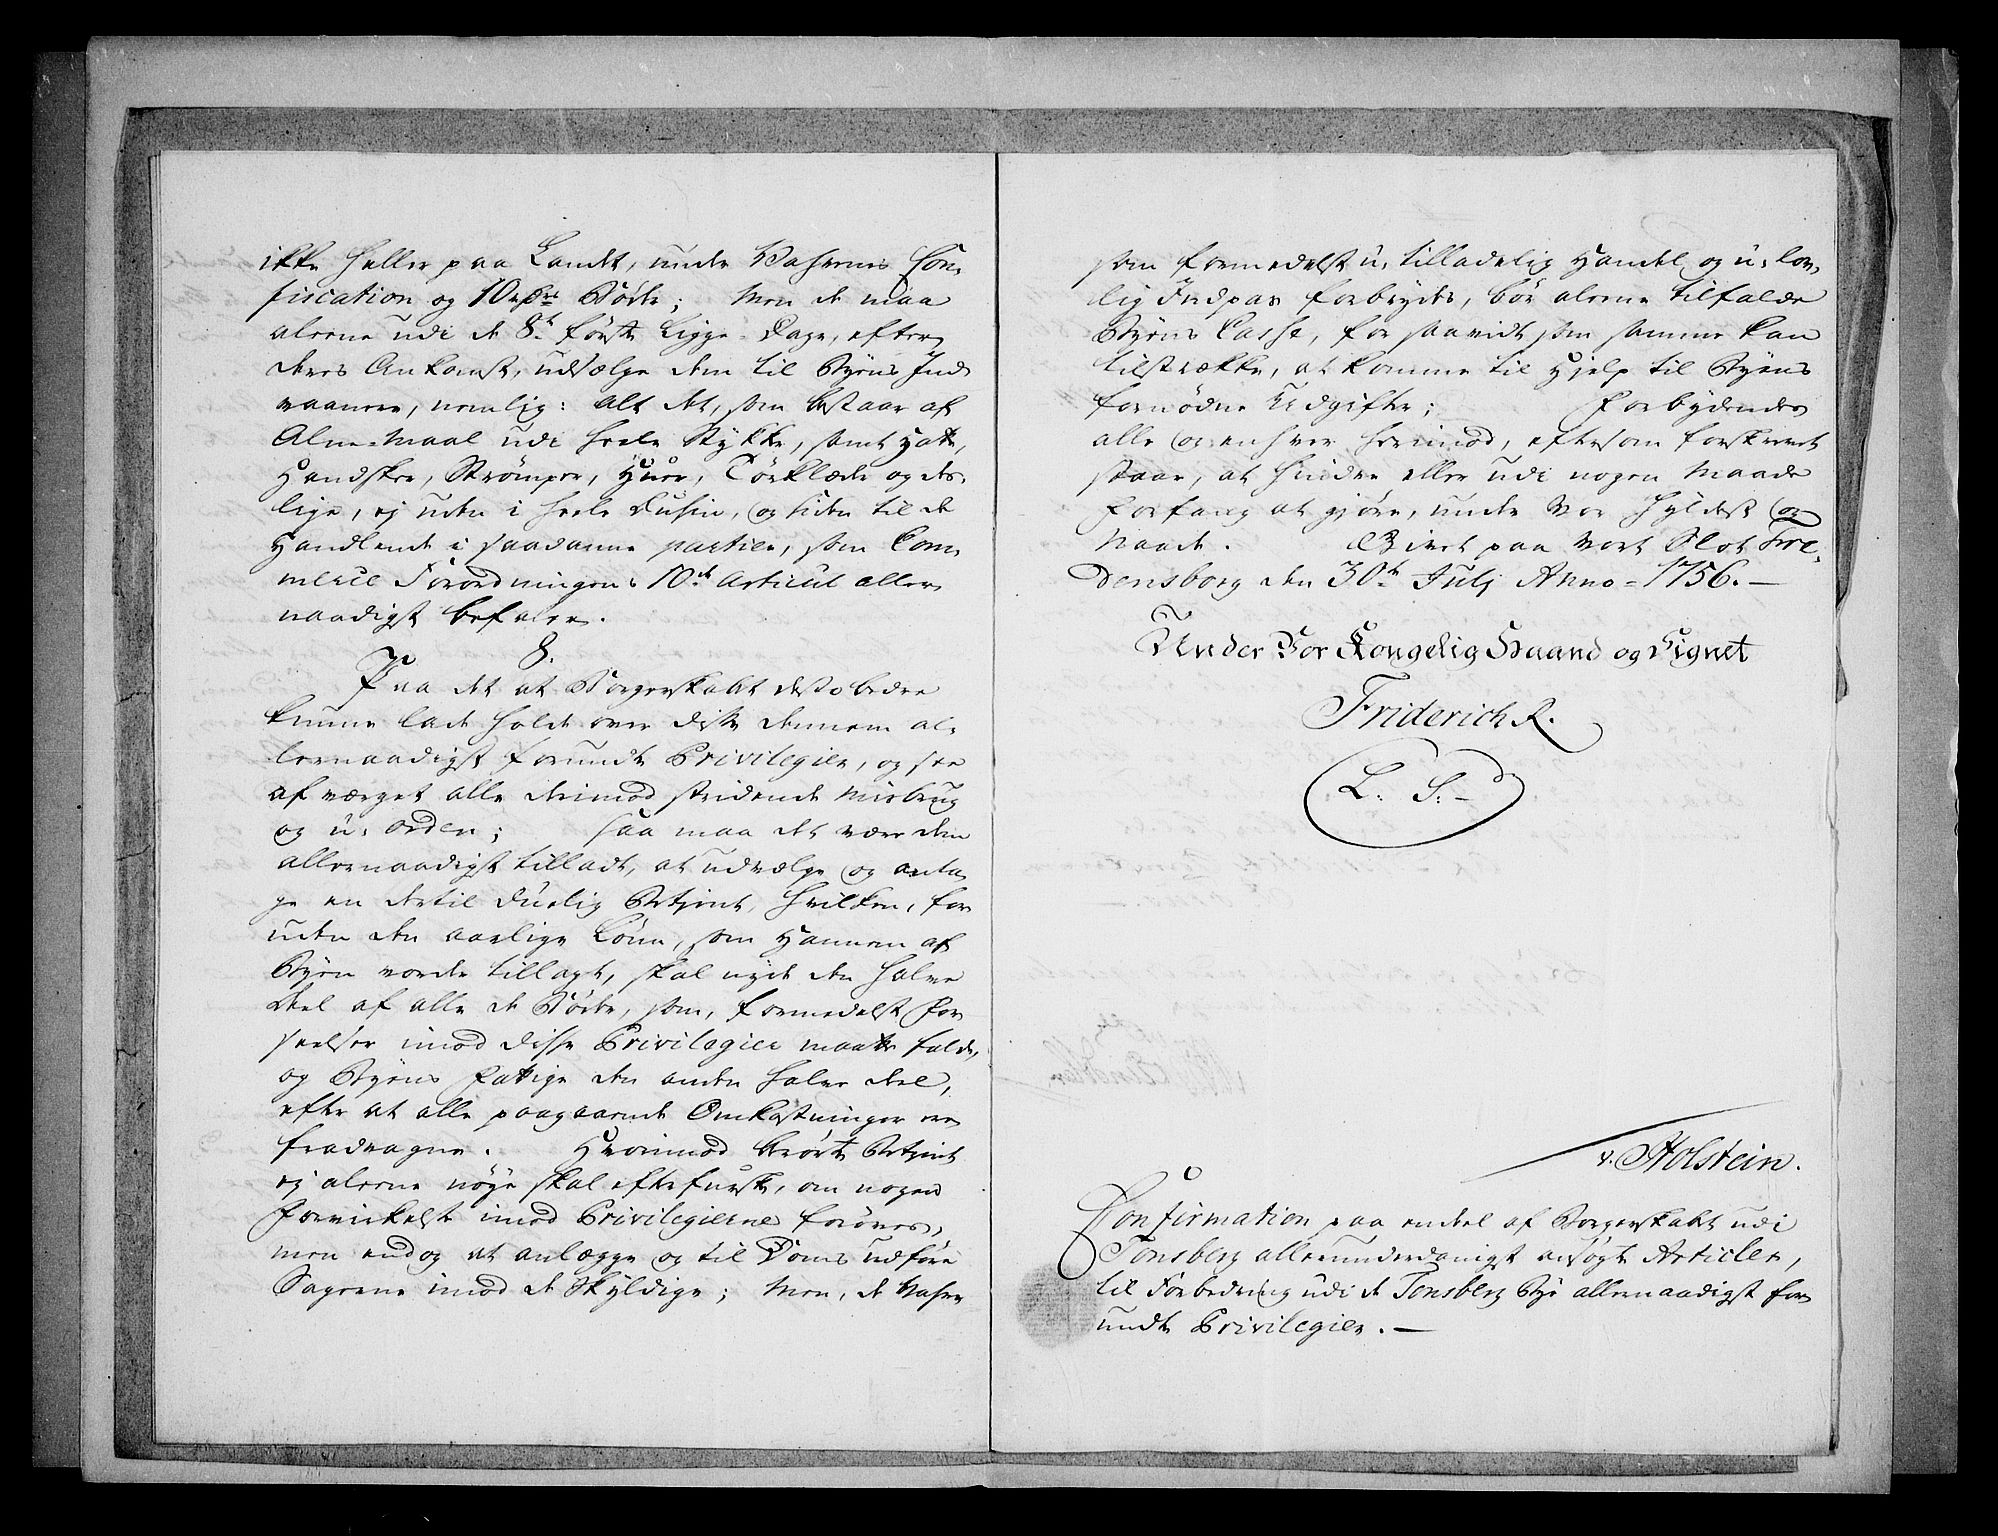 ikke heller paa Landet, under Vahrernes Con-
fiscation og 10 rdrs Bøder; Men de maa
alene udi de 8te første Ligge-Dage, efter
deres Ankomst, udsælge dem til Byens Ind-
vaanere, nemlig: alt det, som bestaar af
Alne-Maal udi heele Stykker, samt Hatte,
Handsker, Strømper, Huer, Tørklæder og des-
lige, ej uden i heele Dusin, og siden til de
Handlende i saadanne partier, som Com-
merce Forordningens 10de Articul aller-
naadigst befaler.
8.
Paa det at Borgerskabet desto bedre
kunne lade holde over disse dennem al-
lernaadigst forundte Privilegier, og see
afværget alle derimod stridende Misbrug
og u-orden; saa maa det være dem
allernaadigst tilladt, at udvælge og anta-
ge en dertil duelig Betjent, hvilken, for-
uden den aarlige Lønn, som hannem af
Byen vorder tillagt, skal nyde den halve
Deel af alle de Bøder, som, formedelst For-
seelser imod disse Privilegier maatte falde,
og Byens Fattige den anden halve Deel,
efter at alle paagaaende Omkostninger ere
fradragne. Hvorimod berørte Betjent
ej alene nøye skal efterfuske, om nogen
Fornærmelse imod Privilegierne forøves,
men endog at anlægge og til Doms udføre
Sagerne imod de Skyldige; Men, de Vahre
som formedelst u-tilladelig Handel og u-lov-
lig Indpas forbrydes, bør alene tilfalde
Byens Casse, for saavidt som samme kan
tilstrække, at komme til Hjelp til Byens
fornødne Udgifter; Forbydendes
alle og enhver herimod, eftersom forskrevet
staar, at hindre eller udi nogen Maade
Forfang at gjøre, under Vor Hyldest og
Naade. Givet paa Vort Slot Fre-
densborg den 30te Julj Anno-1756.-
Under Vor Kongelig Haand og Signet
Friderich R.
L: S:-
v. Holstein.
Confirmation paa endeel af Borgerskabet udi
Tonsberg allerunderdanigst ansøgte Articler,
til Forbedring udi de Tonsberg Bye allernaadigst for-
undte Privilegier.-